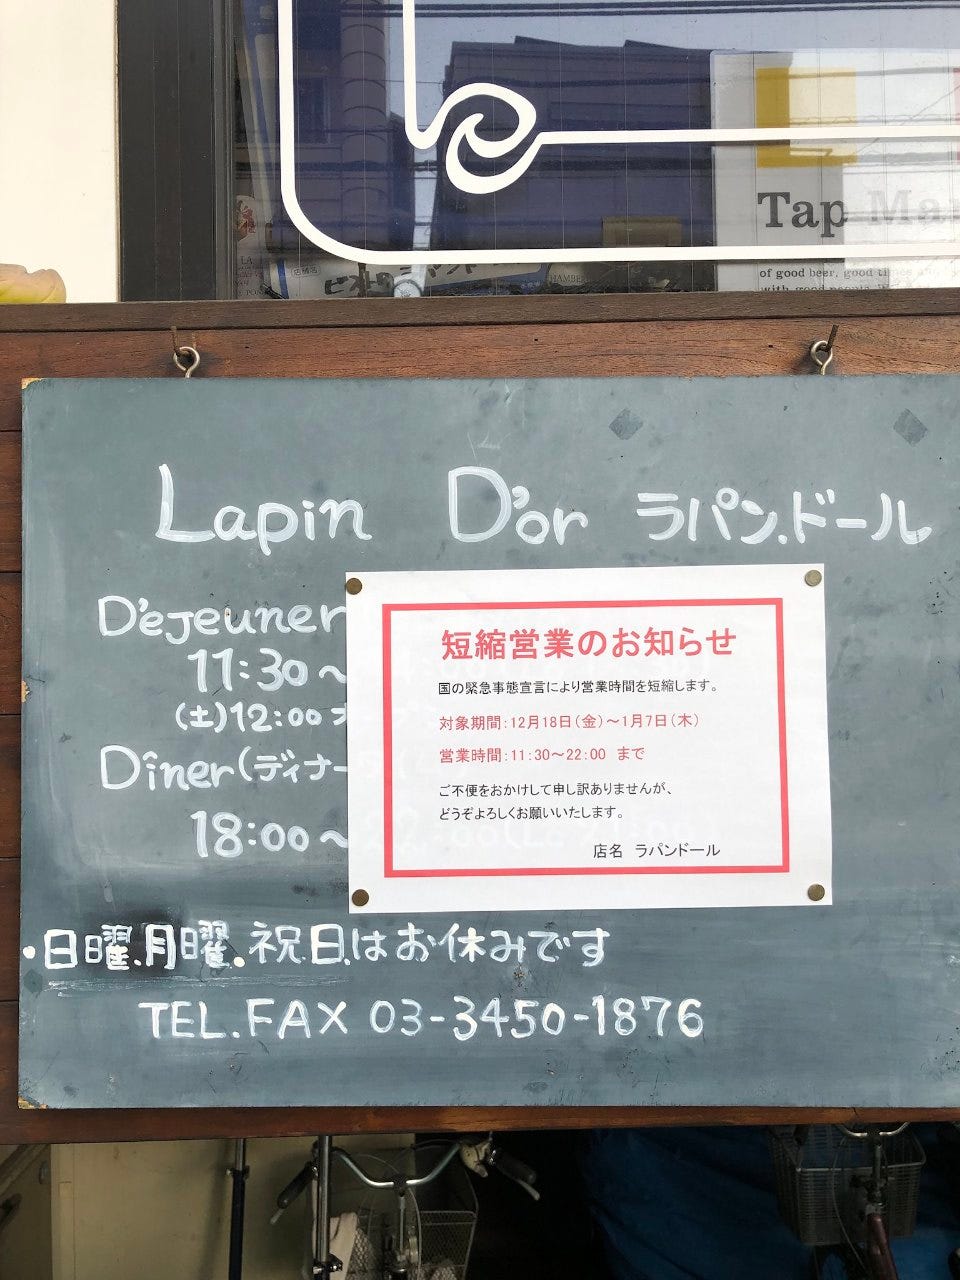 Tap Mar
of good beer, good times
with good people
店舗名
HAMBER
Lapin D'or ラパン.ドール
D'ejeuner
11:30～
(土)12:00
Dîner(ディナー
18:00～
短縮営業のお知らせ
国の緊急事態宣言により営業時間を短縮します。
対象期間：12月18日（金）～1月7日（木）
営業時間：11:30～22:00 まで
ご不便をおかけして申し訳ありませんが、
どうぞよろしくお願いいたします。
店名 ラパンドール
・日曜.月曜.祝日はお休みです
TEL.FAX 03-3450-1876